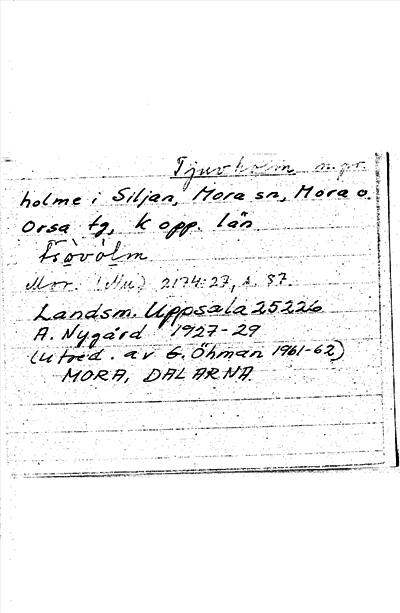 Tjuvholm n.pr.
holme i Siljan, Mora sn, Mora o.
Orsa tg, Kopp. län
Mor. (Nu) 2174:27, s. 37.
Landsm. Uppsala 25226
A. Nygård 1927-29
(utred. av G. Öhman 1961-62)
MORA, DALARNA